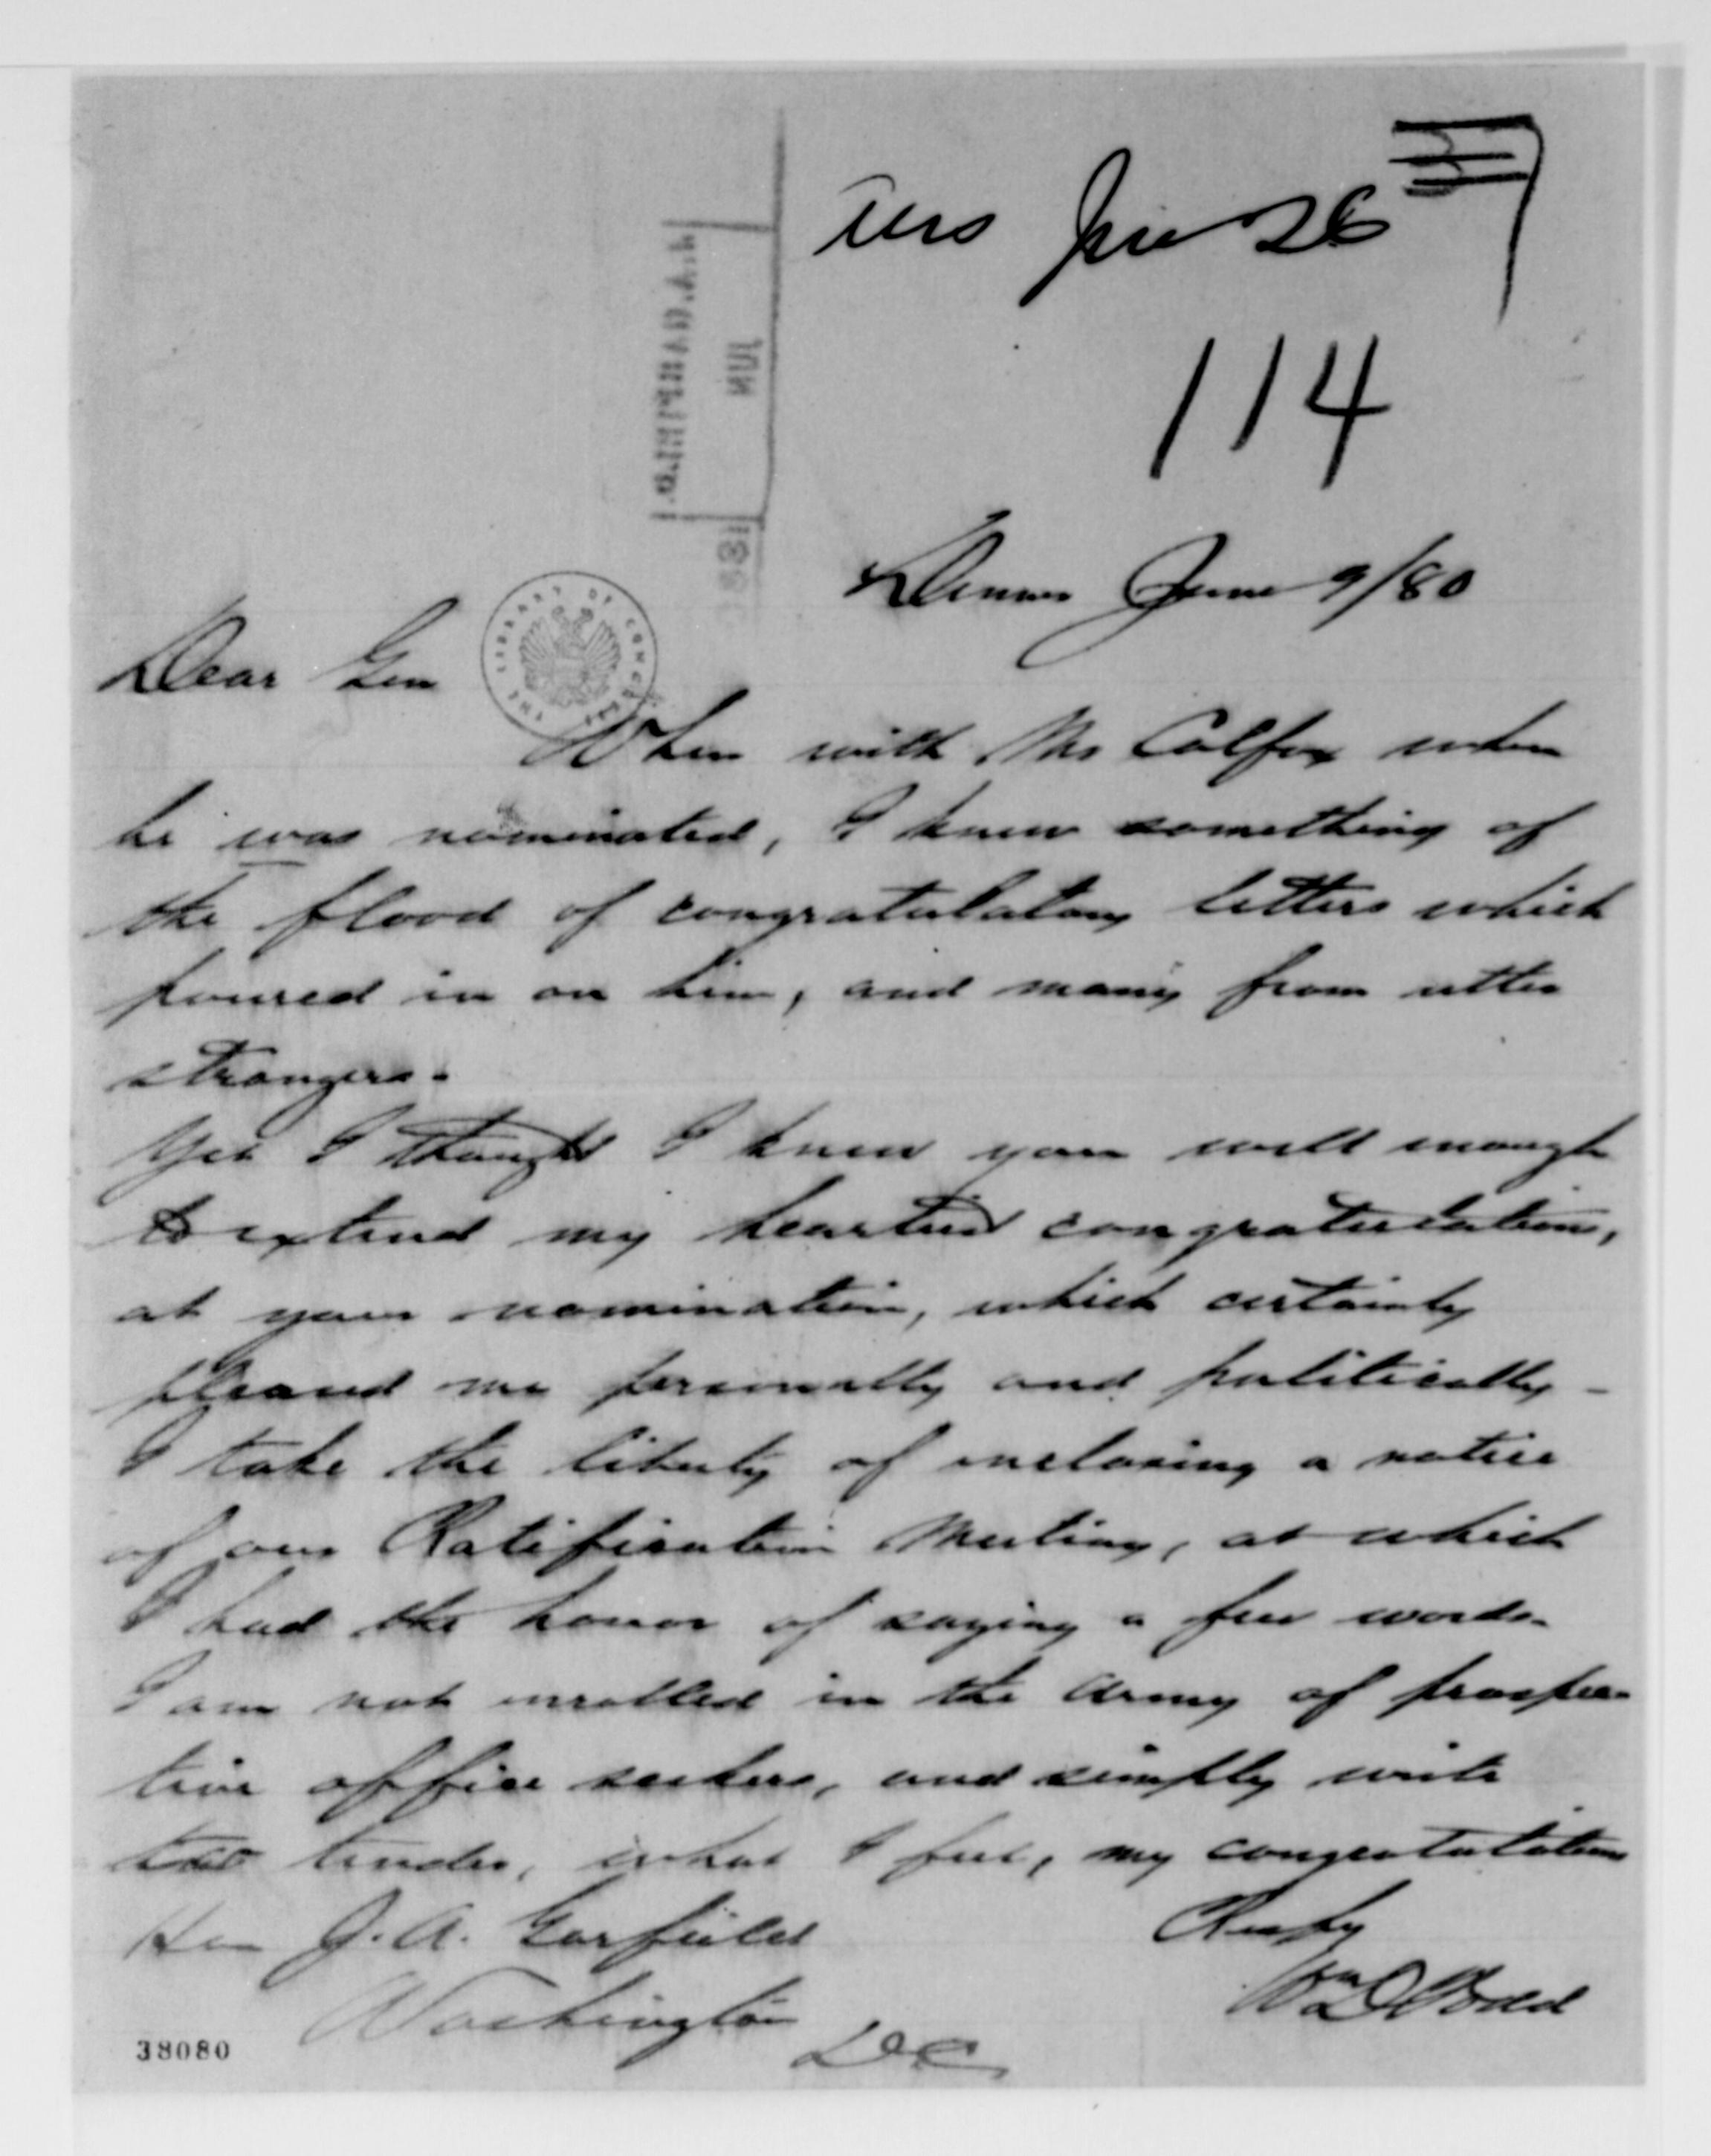 Ans June 26
114
Denver June 9/80
Dear Gen
THE LIBRARY OF CONGRESS
When with Mr Colfax when
he was nominated, I knew something of
the flood of congratulatory letters which
poured in on him, and many from utter
strangers.
Yet I thought I knew you well enough
to extend my heartiest congratulations,
at your nomination, which certainly
pleased me personally and politically -
I take the liberty of enclosing a notice
of our Ratification Meeting, at which
I had the honor of saying a few words.
I am not enrolled in the army of prospec-
tive office seekers, and simply write
to tender, what I feel, my congratulations
Resfy
Hon J. A. Garfield
Washington
DC
38080
JUN
J. A. GARFIELD.